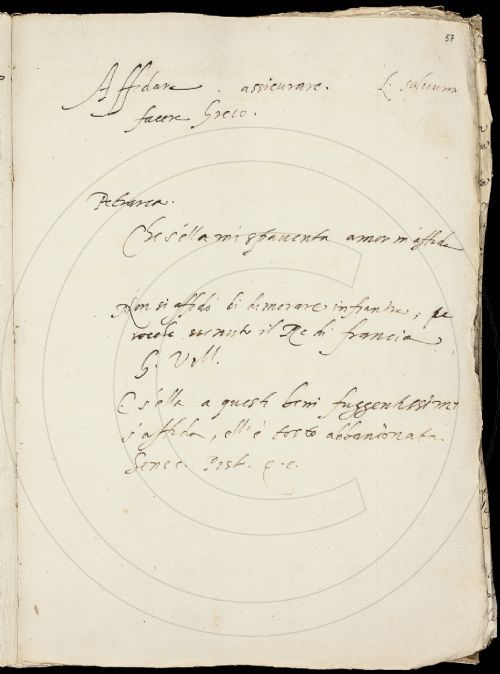 57
Affidare . assicurare. L. saluum
facere Greco.
Petrarca.
Che s'ella mi spauenta amor m'affida
Non si affidò di dimorare in fiandra,
uenuto il Re di francia
G. Vill.
E s'ella a questi beni fuggentissimi
s'affida, ell'è tosto abbandonata.
Senec. Pist.